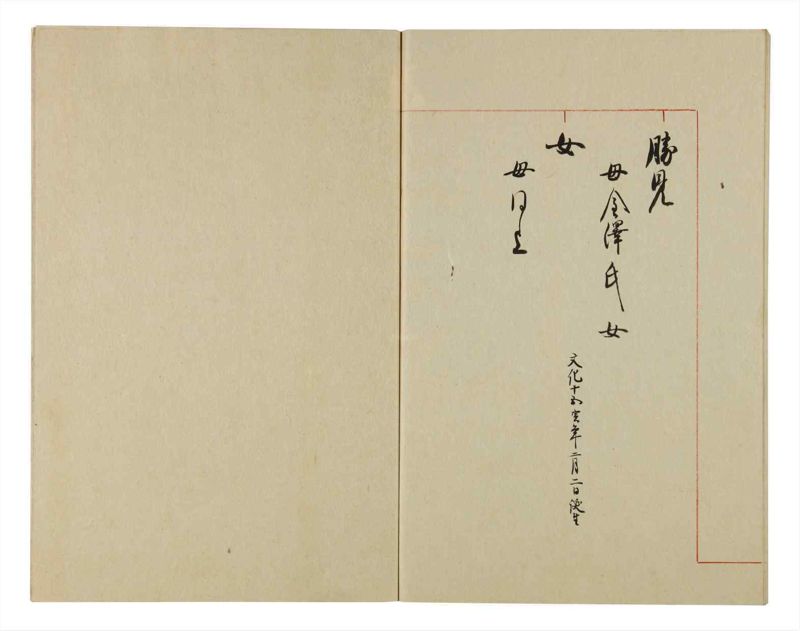 勝見
母金澤氏女
文化十五寅年二月二日誕生
女
母同上